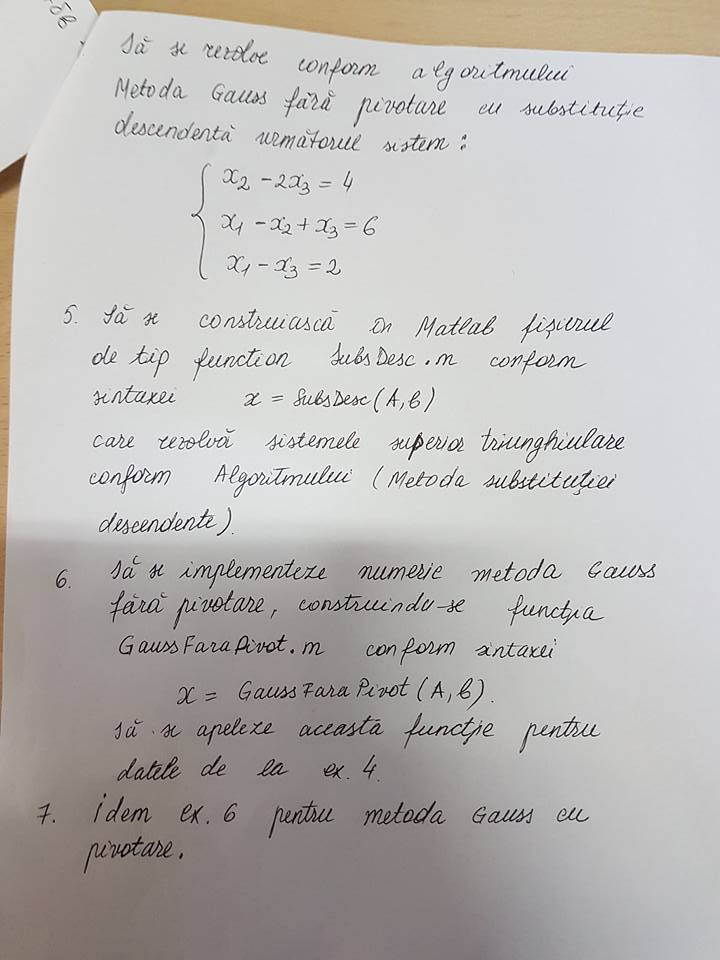 Să se rezolve conform algoritmului
Metoda Gauss fără pivotare cu substituție
descendentă următorul sistem:
x₂ - 2x₃ = 4
x₁ - x₂ + x₃ = 6
x₁ - x₃ = 2
5. Să se construiască în Matlab fișierul
de tip function SubsDesc.m conform
sintaxei x = SubsDesc(A,b)
care rezolvă sistemele superior triunghiulare
conform Algoritmului (Metoda substituției
descendente).
6. Să se implementeze numeric metoda Gauss
fără pivotare, construindu-se funcția
GaussFaraPivot.m conform sintaxei
x = GaussFaraPivot(A,b).
Să se apeleze această funcție pentru
datele de la ex. 4.
7. Idem ex. 6 pentru metoda Gauss cu
pivotare.